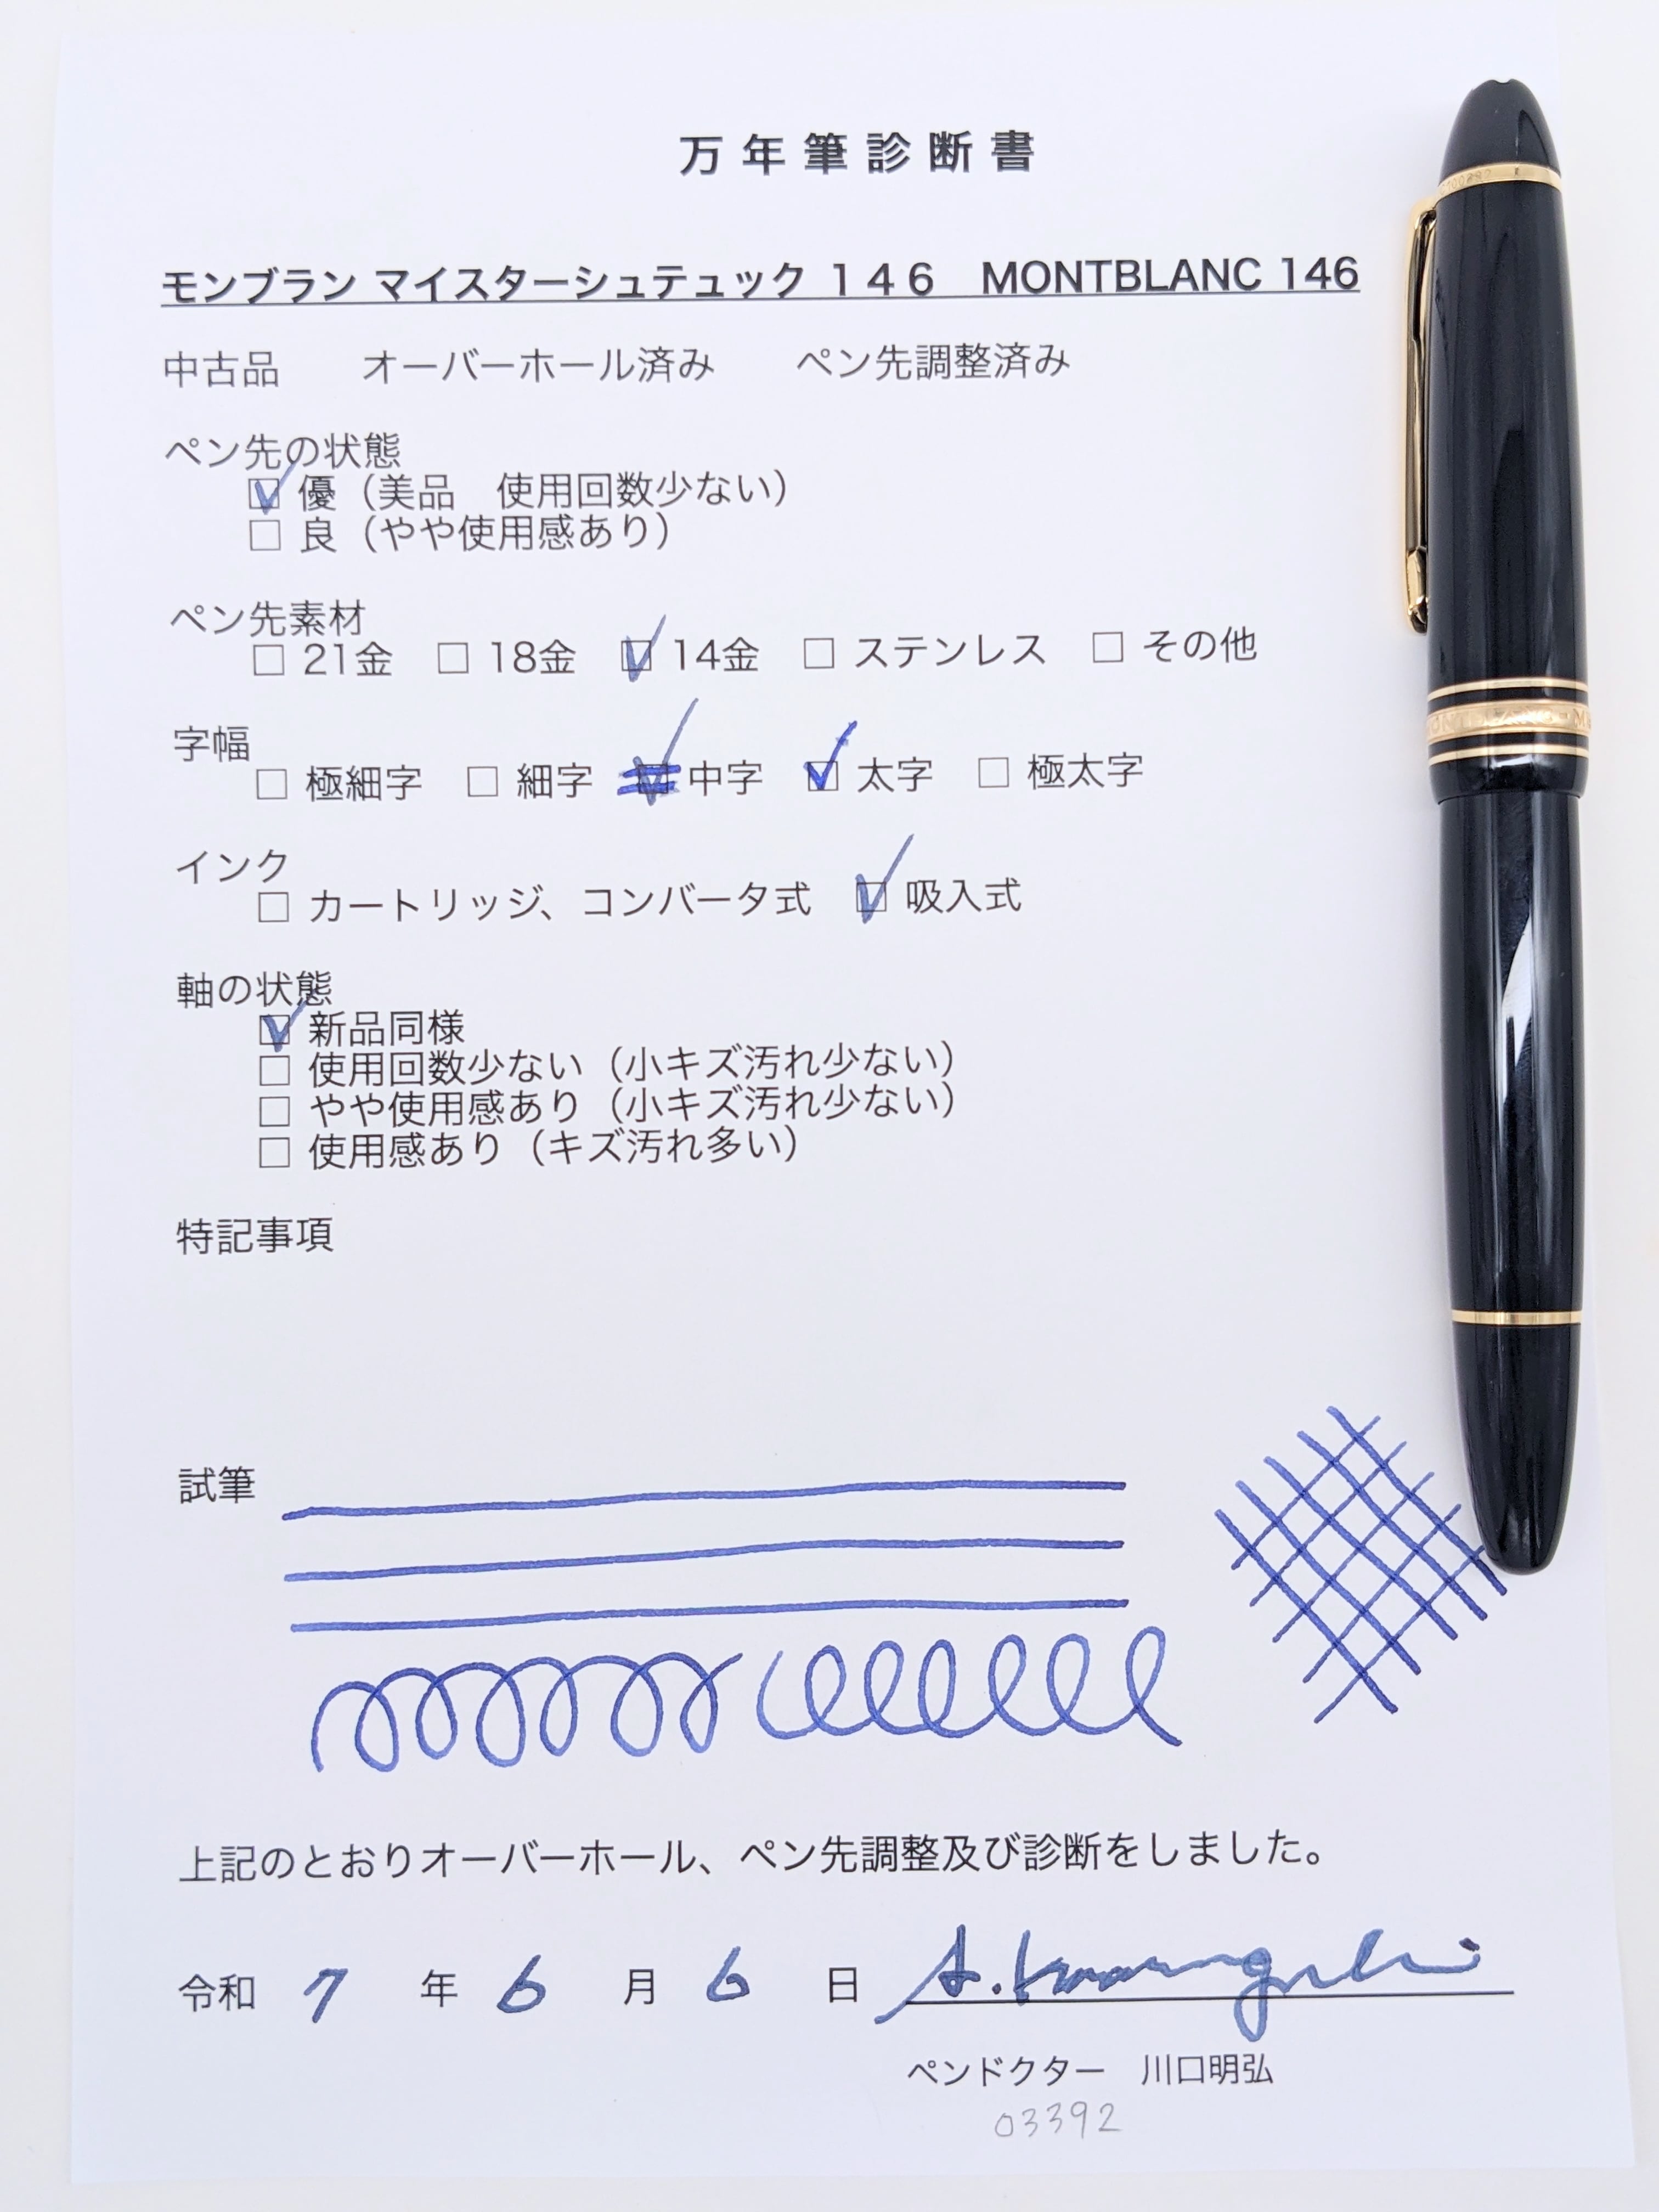 万年筆診断書
モンブラン マイスターシュテュック １４６　MONTBLANC 146
中古品　　オーバーホール済み　　ペン先調整済み
ペン先の状態
☑ 優（美品　使用回数少ない）
☐ 良（やや使用感あり）
ペン先素材
☐ 21金　☐ 18金　☑ 14金　☐ ステンレス　☐ その他
字幅
☐ 極細字　☐ 細字　☑ 中字　☑ 太字　☐ 極太字
インク
☐ カートリッジ、コンバータ式　☑ 吸入式
軸の状態
☑ 新品同様
☐ 使用回数少ない（小キズ汚れ少ない）
☐ やや使用感あり（小キズ汚れ少ない）
☐ 使用感あり（キズ汚れ多い）
特記事項
試筆
上記のとおりオーバーホール、ペン先調整及び診断をしました。
令和 7 年 6 月 6 日
ペンドクター　川口明弘
03392